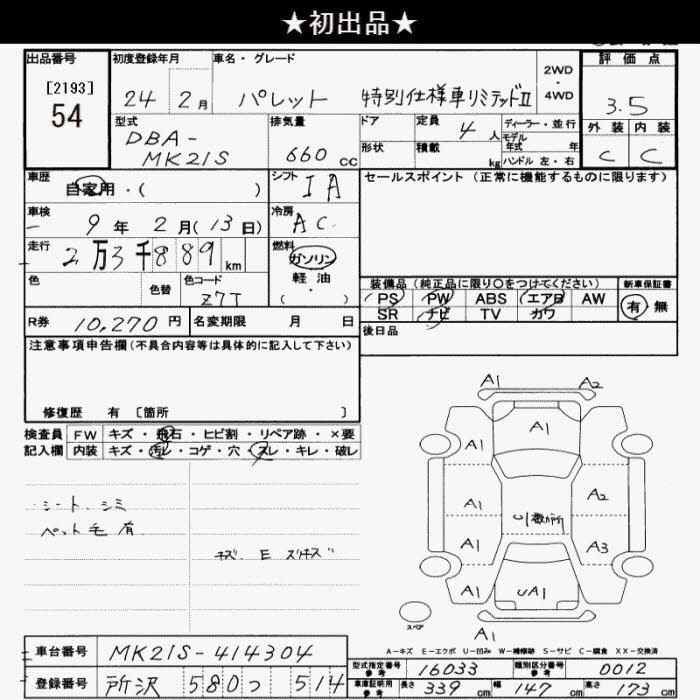 ★初出品★
出品番号
[2193]
54
初度登録年月
24 2月
車名・グレード
パレット 特別仕様車リミテッドⅡ
2WD
・
4WD
評価点
3.5
外装 内装
C C
型式
DBA-
MK21S
排気量
660 cc
ドア
形状
定員 4人
積載 kg
ディーラー・並行
モデル年式 年
ハンドル 左・右
車歴
自家用・( )
シフト
IA
セールスポイント (正常に機能するものに限ります)
車検
9年 2月(13日)
冷房
AC
走行
2万3千889km
燃料
ガソリン
軽油
( ・ )
色
色替
色コード
Z7T
装備品 (純正品に限り○をつけてください)
新車保証書
PS PW ABS エアB AW
SR ナビ TV カワ
有・無
R券 10,270円
名変期限 月 日
後日品
注意事項申告欄(不具合内容等は具体的に記入して下さい)
修復歴 有 [箇所 ]
検査員
記入欄
FW キズ・飛石・ヒビ割・リペア跡・×要
内装 キズ・汚レ・コゲ・穴・スレ・キレ・破レ
シート シミ
ペット毛有
A1 A2
A1
A1
A1 U1数ヶ所 A2
A1 A3
A1 UA1
A1
スペア
A-キズ E-エクボ U-凹み W-補修跡 S-サビ C-腐食 XX-交換済
車台番号 MK21S-414304
登録番号 所沢 580つ 514
型式指定番号
参考
16033
類別区分番号
参考
0012
車庫証明用
参考
長さ 339cm 幅 147cm 高さ 173cm